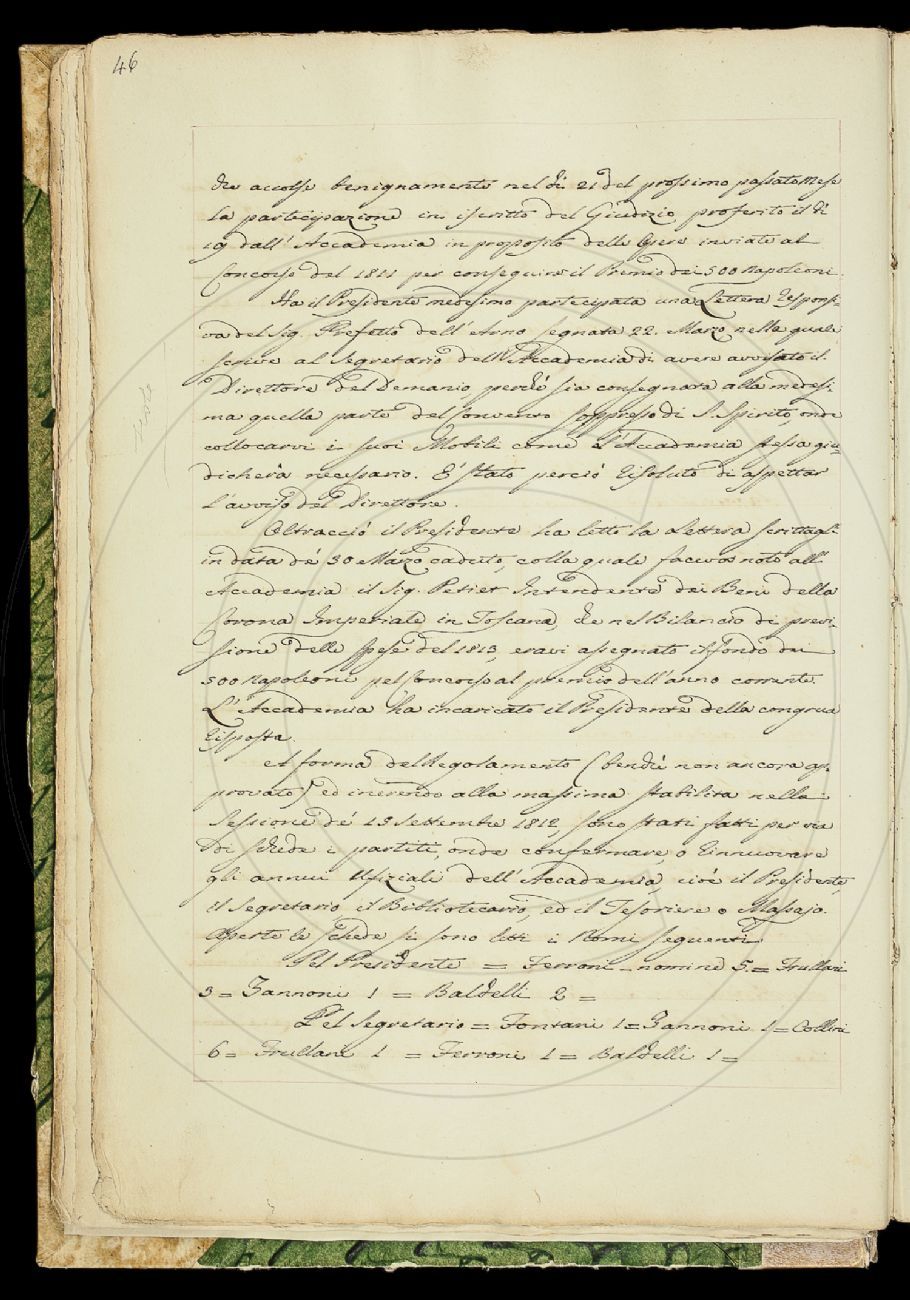 46
che accolse benignamente nel dì 21 del prossimo passato Mese
la partecipazione in iscritto del Giudizio proferito il dì
19 dall'Accademia in proposito delle Opere inviate al
Concorso del 1811 per conseguire il Premio dei 500 Napoleoni.
Ha il Presidente medesimo partecipata una Lettera Responsi-
va del Sig. Prefetto dell'Arno segnata 22. Marzo nella quale
scrive al Segretario dell'Accademia di avere avvisato il
Direttore del Demanio, perchè sia consegnata alla medesi-
ma quella parte del Convento soppresso di S. Spirito, onde
collocarvi i suoi Mobili come L'Accademia stessa giu-
dicherà necessario. E' stato perciò Risoluto di aspettar
l'avviso del Direttore.
Oltracciò il Presidente ha letto la Lettera scrittagli
in data de' 30 Marzo caduto, colla quale faceva noto all'
Accademia il Sig. Petiet Intendente dei Beni della
Corona Imperiale in Toscana, che nel Bilancio di previ-
sione delle spese del 1813, eravi assegnato il fondo dei
500 Napoleoni pel Concorso al premio dell'anno corrente.
L'Accademia ha incaricato il Presidente della congrua
Risposta.
A forma del Regolamento (benchè non ancora ap-
provato) ed inerendo alla massima stabilita nella
Sessione de' 15 Settembre 1812, sono stati fatti per via
di schede i partiti, onde confermare, o Rinnuovare
gli annui Ufiziali dell'Accademia, cioè il Presidente,
il Segretario, il Bibliotecario, ed il Tesoriere o Massajo.
Aperte le schede si sono letti i Nomi seguenti
Pel Presidente = Ferroni nomine 5 = Frullani
3 = Zannoni 1 = Baldelli 2 =
Pel Segretario = Fontani 1 = Zannoni 1 = Collini
6 = Frullani 1 = Ferroni 1 = Baldelli 1 =